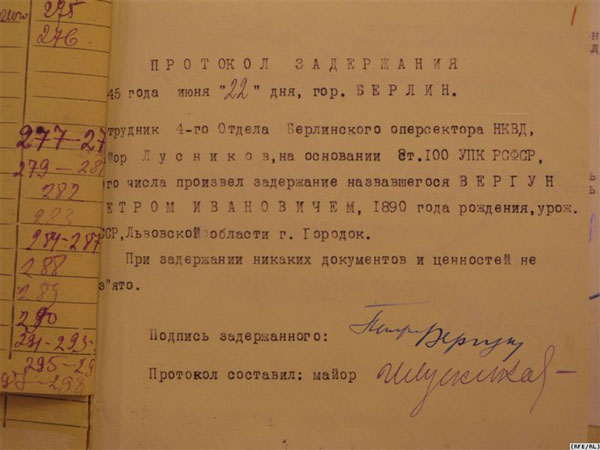 275
276
277-27
279-28
282
283
284-287
288
289
290
291-293
295-29
ПРОТОКОЛ ЗАДЕРЖАНИЯ
45 года июня "22" дня, гор. БЕРЛИН.
трудник 4-го Отдела Берлинского оперсектора НКВД,
йор Лусников, на основании Ст.100 УПК РСФСР,
го числа произвел задержание назвавшегося ВЕРГУН
ЕТРОМ ИВАНОВИЧЕМ, 1890 года рождения, урож.
СР, Львовской области г. Городок.
При задержании никаких документов и ценностей не
з"ято.
Подпись задержанного: Вергун
Протокол составил: майор
(RFE/RL)